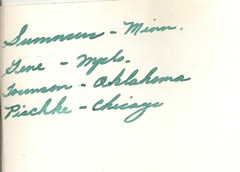 Sumners - Minn.
Gene - Mpls.
Tounson - Oklahoma
Pischke - Chicago